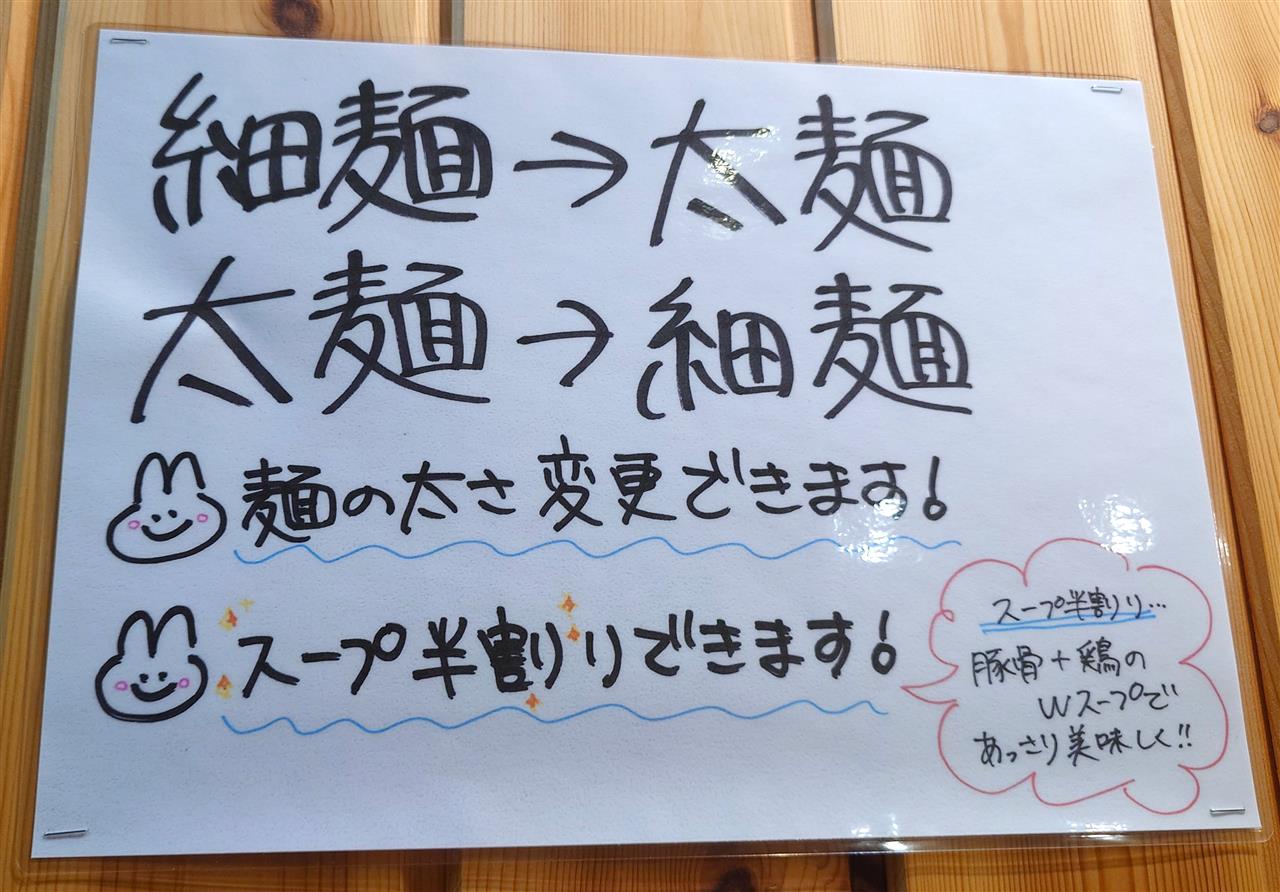 細麺→太麺
太麺→細麺
麺の太さ変更できます!
スープ半割りできます!
スープ半割り…
豚骨+鶏の
Wスープで
あっさり美味しく!!